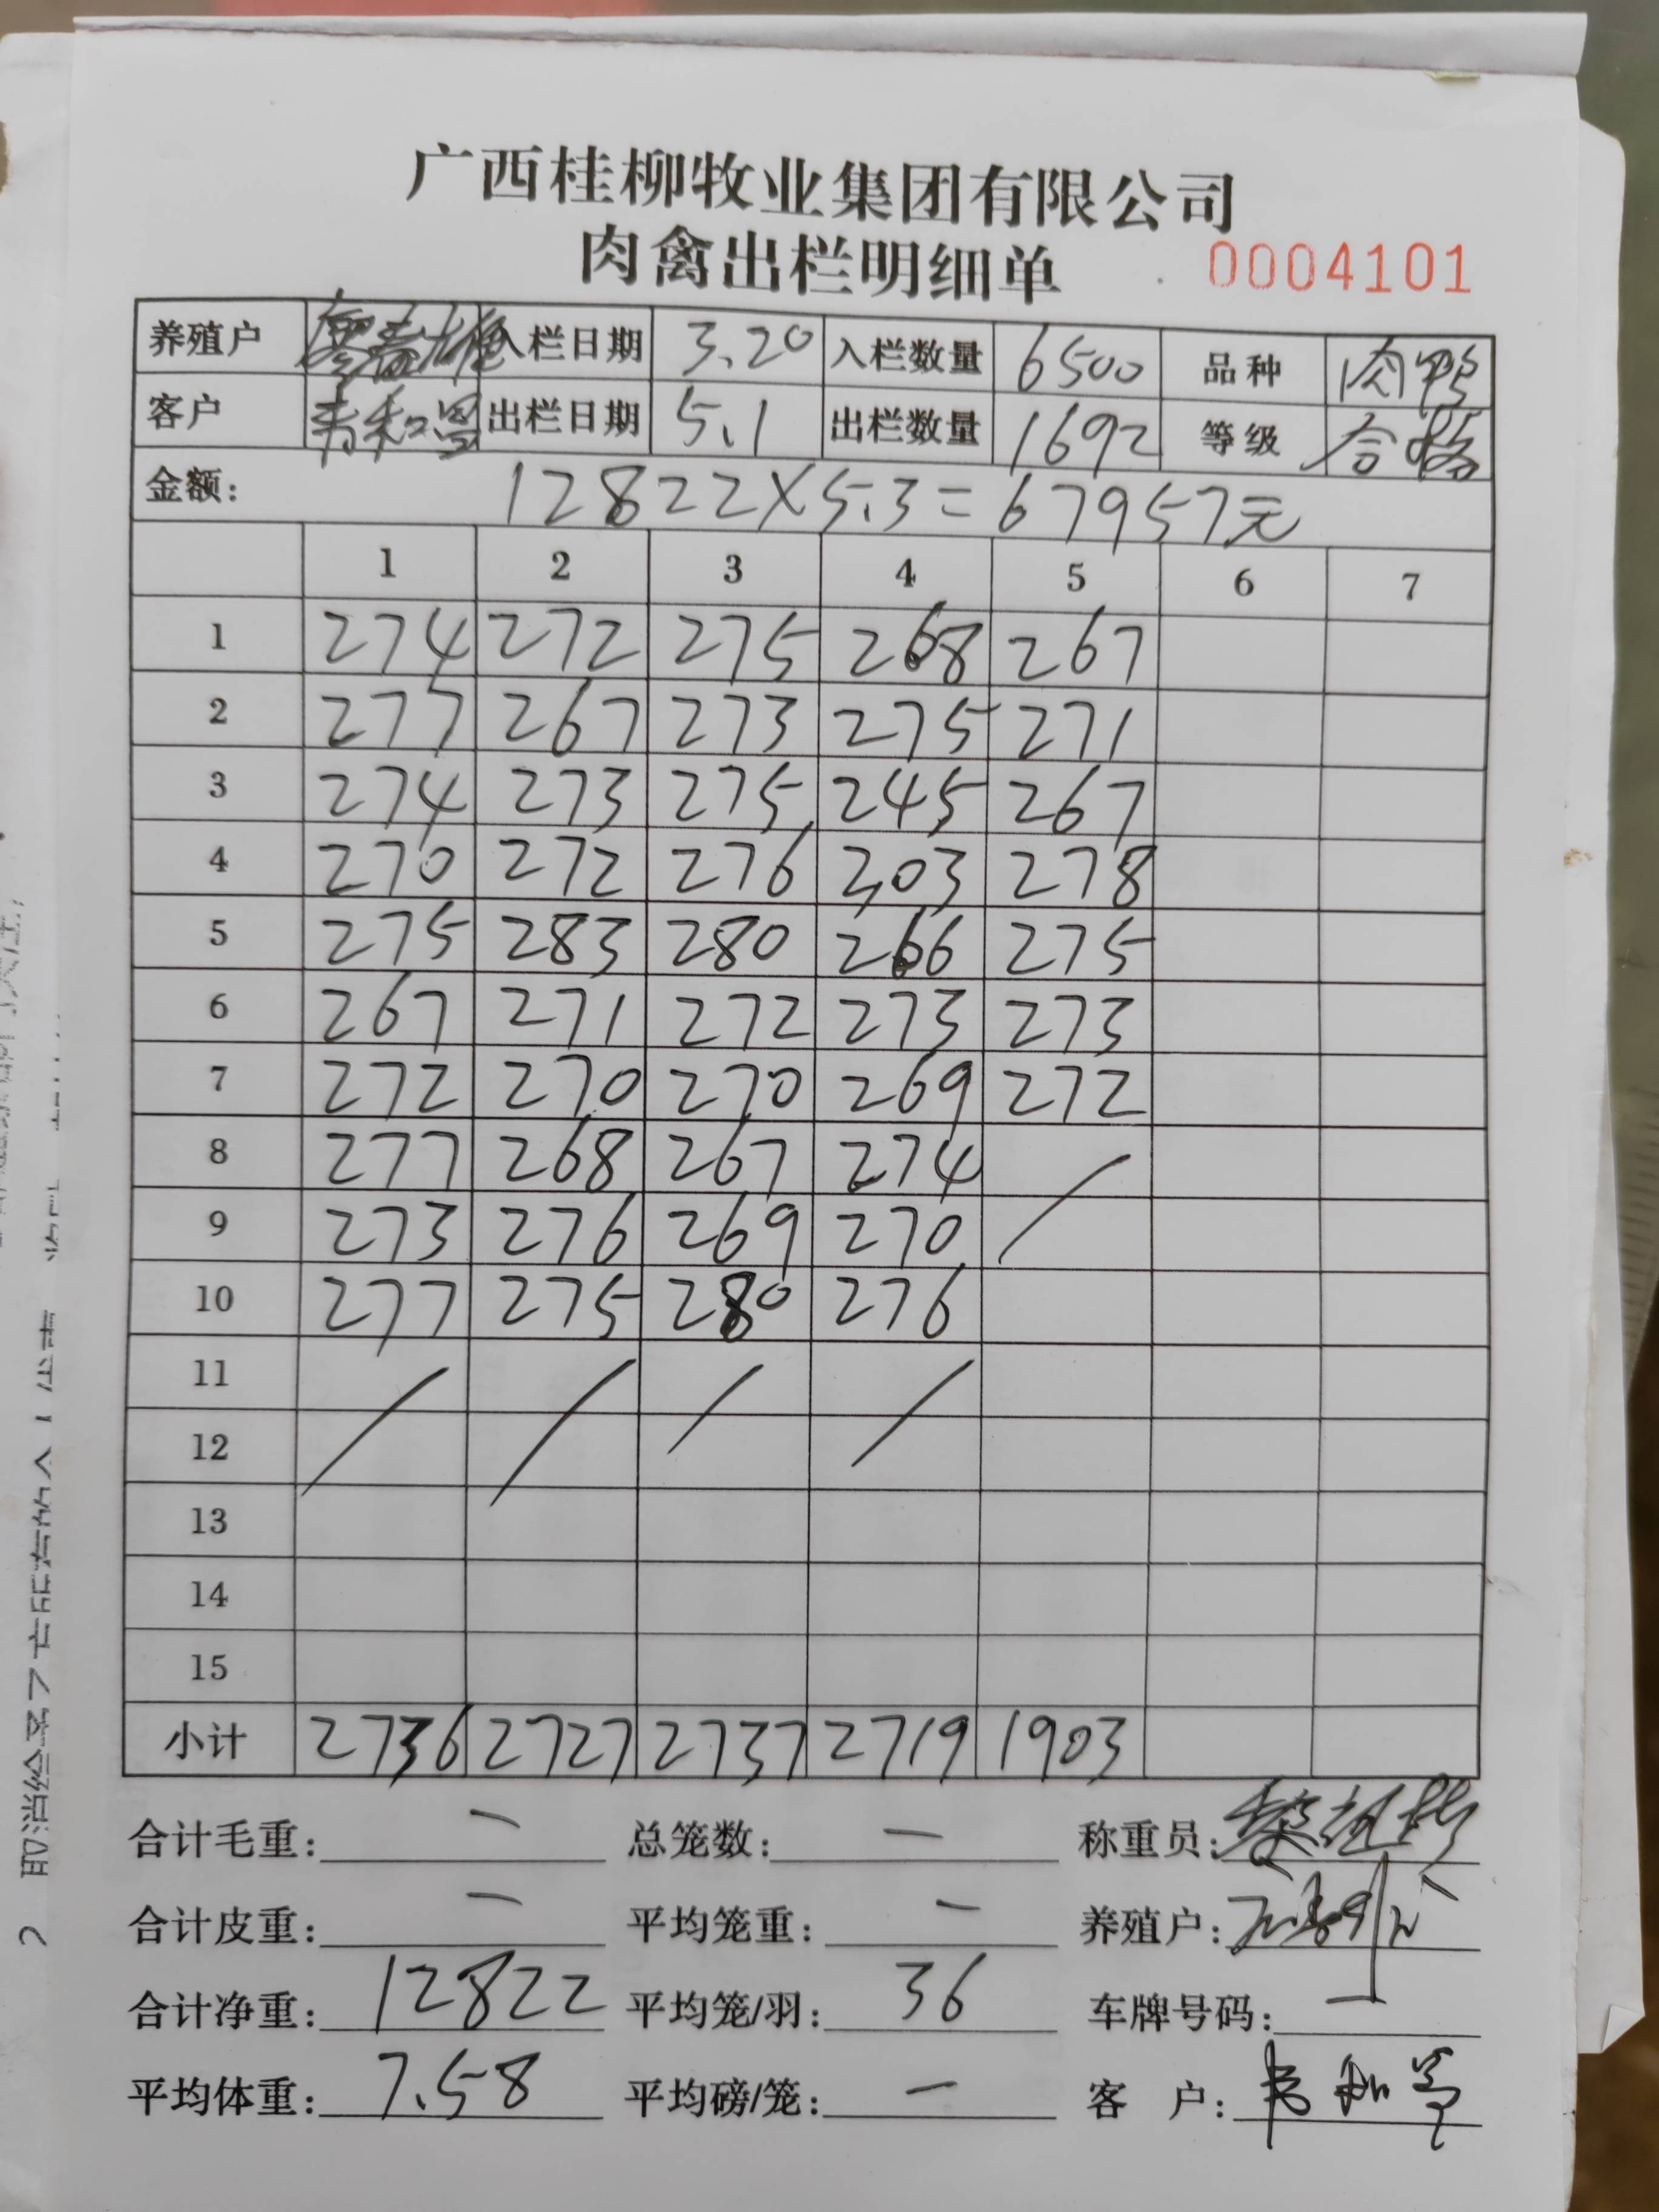 广西桂柳牧业集团有限公司
肉禽出栏明细单 0004101
养殖户 廖春雄 入栏日期 3.20 入栏数量 6500 品种 肉鸭
客户 韦和 出栏日期 5.1 出栏数量 1692 等级 合格
金额: 12822×5.3=67957元
1 2 3 4 5 6 7
1 274 272 275 268 267
2 277 267 273 275 271
3 274 273 275 245 267
4 270 272 276 303 278
5 275 283 280 266 275
6 267 271 272 273 273
7 272 270 270 269 272
8 277 268 267 274 /
9 273 276 269 270
10 277 275 280 276
11 / / / /
12
13
14
15
小计 2736 2727 2737 2719 1903
合计毛重: — 总笼数: — 称重员:
合计皮重: — 平均笼重: — 养殖户:
合计净重: 12822 平均笼/羽: 36 车牌号码: —
平均体重: 7.58 平均磅/笼: — 客 户: 韦和